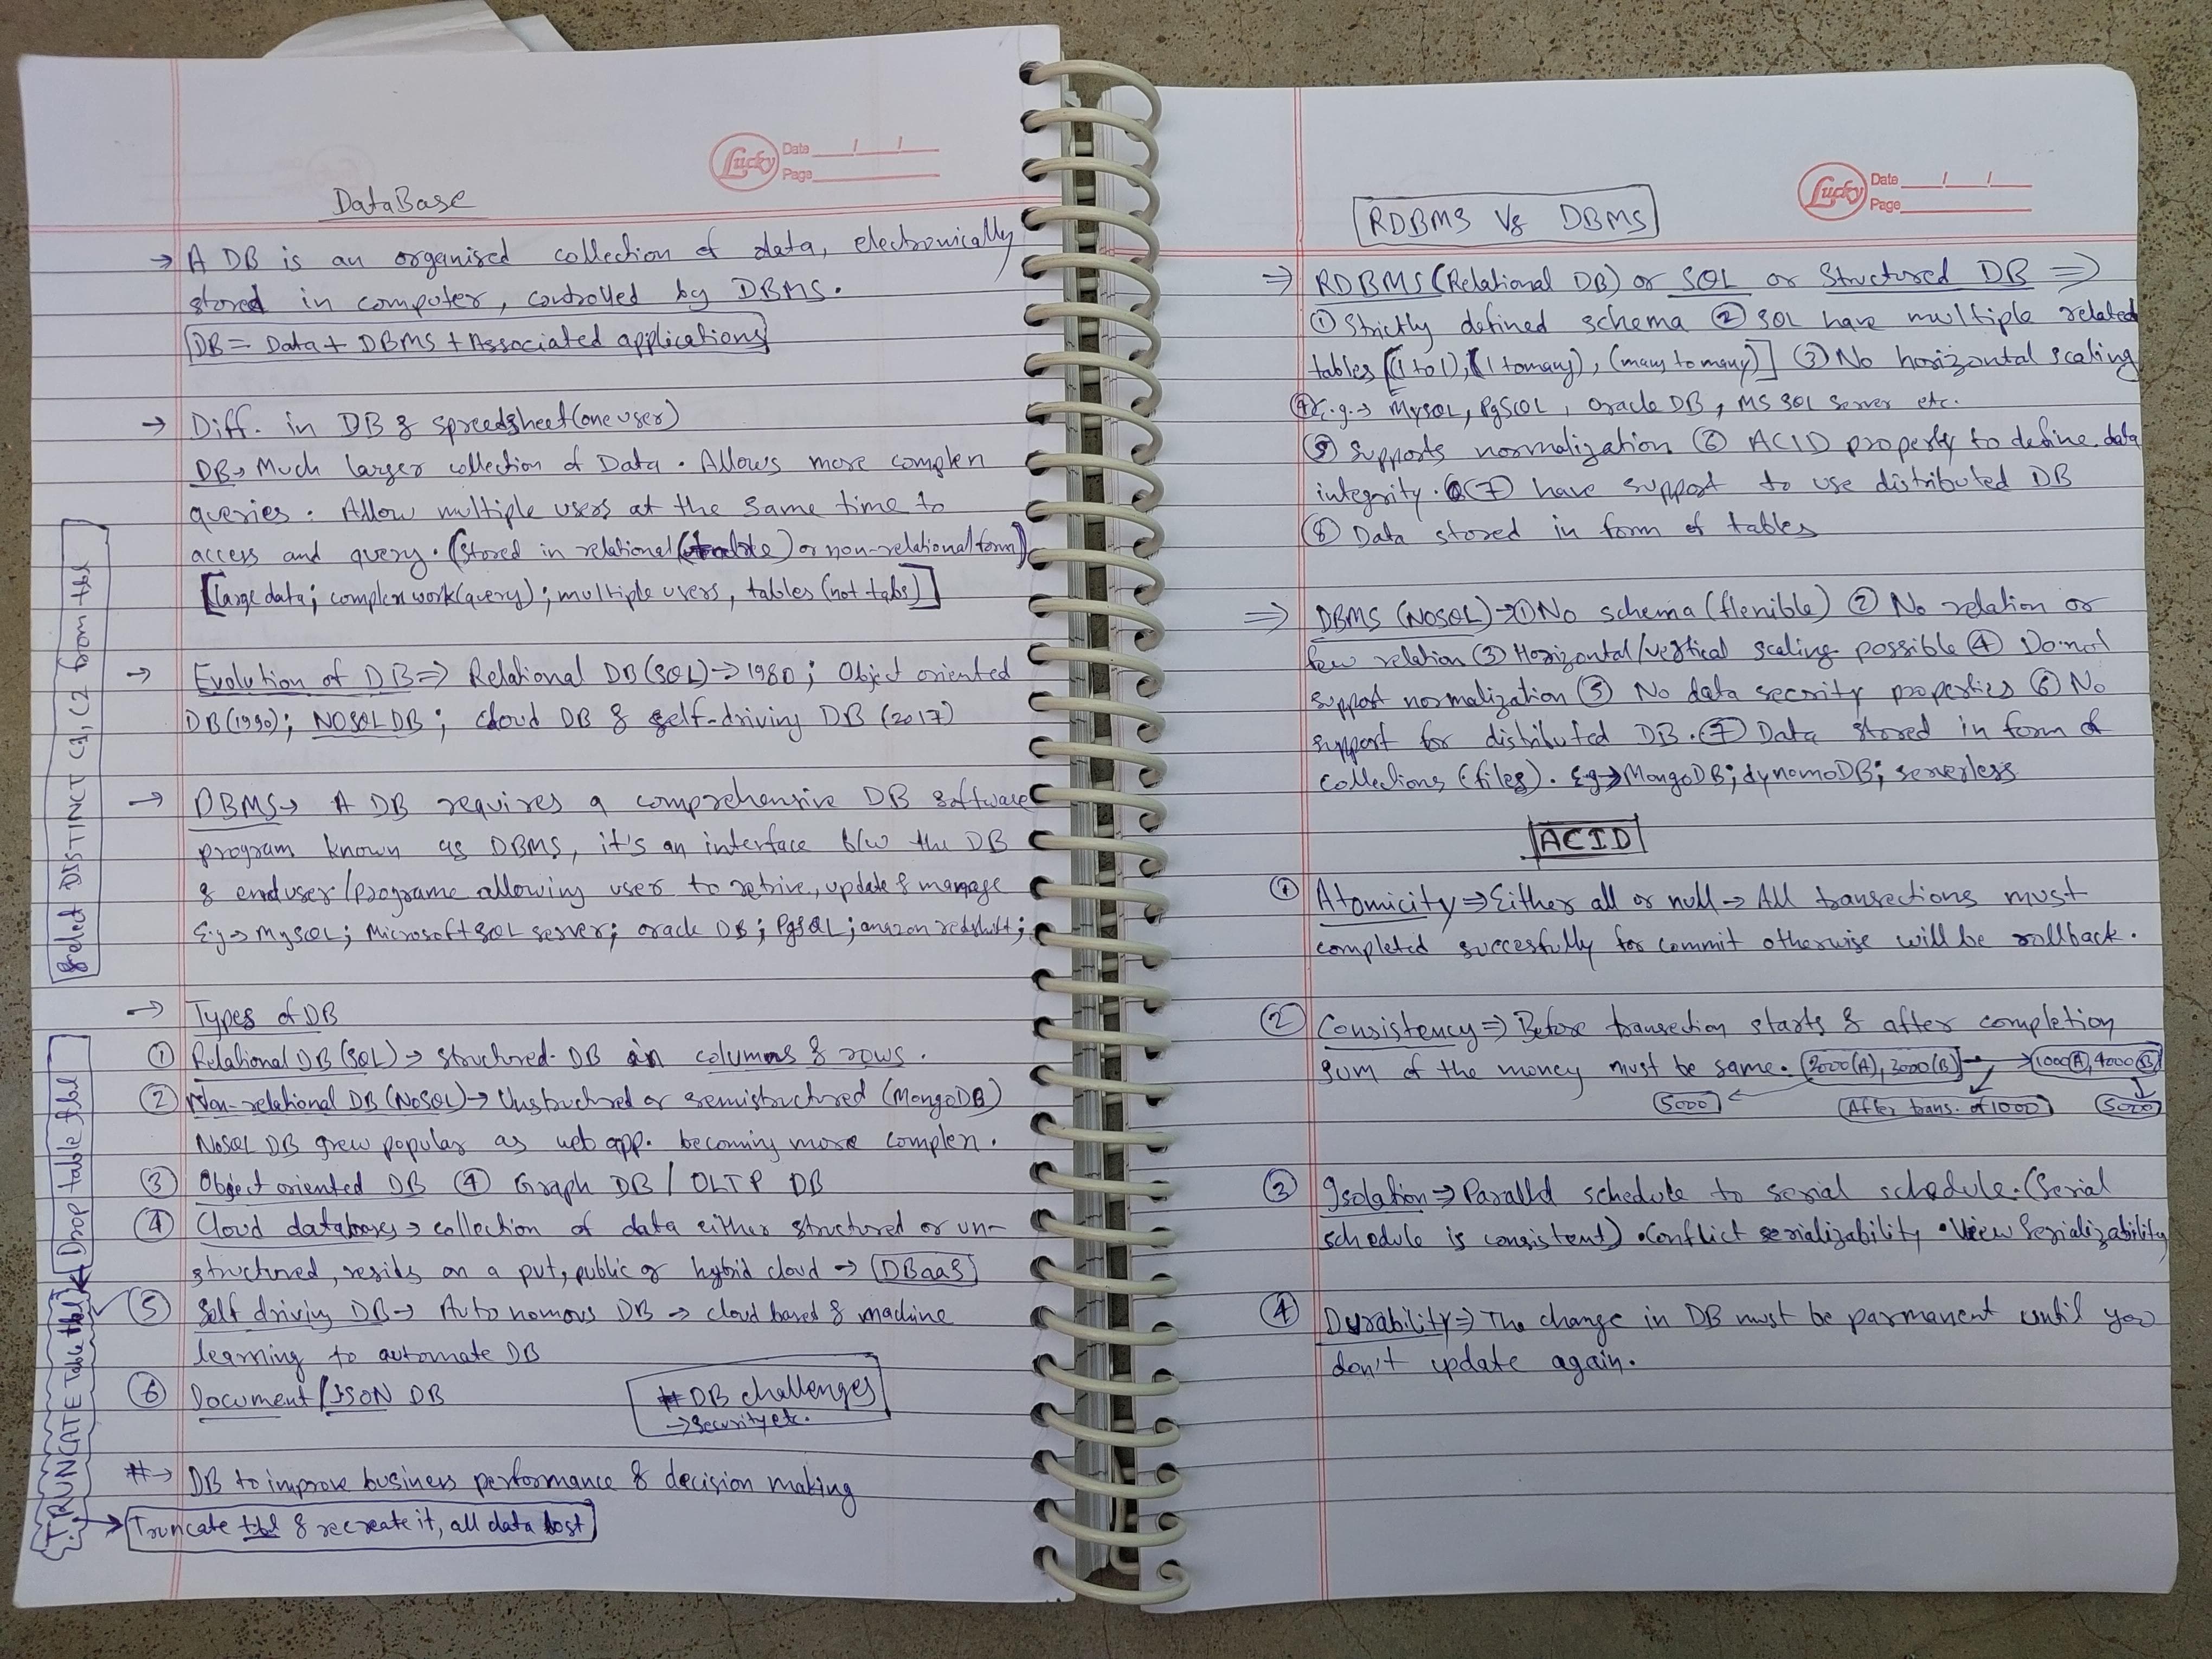 Lucky Date / /
Page
DataBase
→ A DB is an organised collection of data, electronically
stored in computer, controlled by DBMS.
DB = Data + DBMS + Associated applications
→ Diff. in DB & spreedsheet (one user)
DB → Much larger collection of Data. Allows more complex
queries. Allow multiple users at the same time to
access and query. (stored in relational or non-relational form)
[large data; complex work(query); multiple users, tables (not tabs)]
→ Evolution of DB ⇒ Relational DB (SQL) → 1980; Object oriented
DB (1990); NOSQL DB; cloud DB & self-driving DB (2017)
→ DBMS → A DB requires a comprehensive DB software
program known as DBMS, it's an interface b/w the DB
& enduser/programe allowing user to retrive, update & manage
E.g → MySQL; Microsoft SQL server; oracle DB; PgSQL; amazon redshift;
→ Types of DB
① Relational DB (SQL) → structured DB in columns & rows.
② Non-relational DB (NoSQL) → Unstructured or semistructured (MongoDB)
NoSQL DB grew popular as web app. becoming more complex.
③ Object oriented DB ④ Graph DB / OLTP DB
④ Cloud databases → collection of data either structured or un-
structured, resids on a pvt, public or hybrid cloud → [DBaaS]
⑤ Self driving DB → Autonomous DB → cloud based & machine
learning to automate DB
⑥ Document/JSON DB
# DB challenges
→ security etc.
# → DB to improve business performance & decision making
Truncate tbl & recreate it, all data lost
Select DISTINCT C1, C2 from tbl
Drop table tbl
TRUNCATE Table tbl
Lucky Date / /
Page
RDBMS Vs DBMS
⇒ RDBMS (Relational DB) or SQL or Structured DB ⇒
① Strictly defined schema ② SQL have multiple related
tables [(1 to 1), (1 to many), (many to many)] ③ No horizontal scaling
④ E.g. → MySQL, PgSQL, Oracle DB, MS SQL Server etc.
⑤ Supports normalization ⑥ ACID property to define data
integrity. ⑦ have support to use distributed DB
⑧ Data stored in form of tables
⇒ DBMS (NOSQL) → ① No schema (flexible) ② No relation or
few relation ③ Horizontal/vertical scaling possible ④ Do not
support normalization ⑤ No data security properties ⑥ No
support for distributed DB. ⑦ Data stored in form of
collections (files). Eg → MongoDB; dynomoDB; serverless
ACID
① Atomicity ⇒ Either all or null → All transections must
completed succesfully for commit otherwise will be rollback.
② Consistency ⇒ Before transection starts & after completion
sum of the money must be same. 2000(A), 3000(B) → 1000(A), 4000(B)
5000 ← After trans. of 1000 5000
③ Isolation ⇒ Paralld schedule to serial schedule. (Serial
schedule is consistent) • Conflict serializability • View Serializability
④ Durability ⇒ The change in DB must be parmanent until you
don't update again.